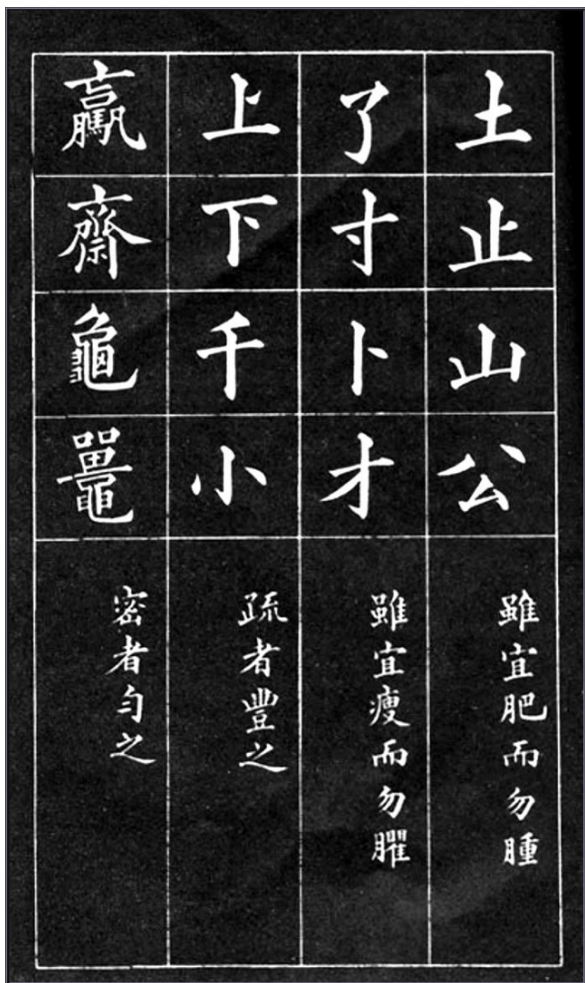 土止山公
雖宜肥而勿腫
了寸卜才
雖宜瘦而勿臞
上下千小
疏者豐之
驘齋龜鼉
密者匀之